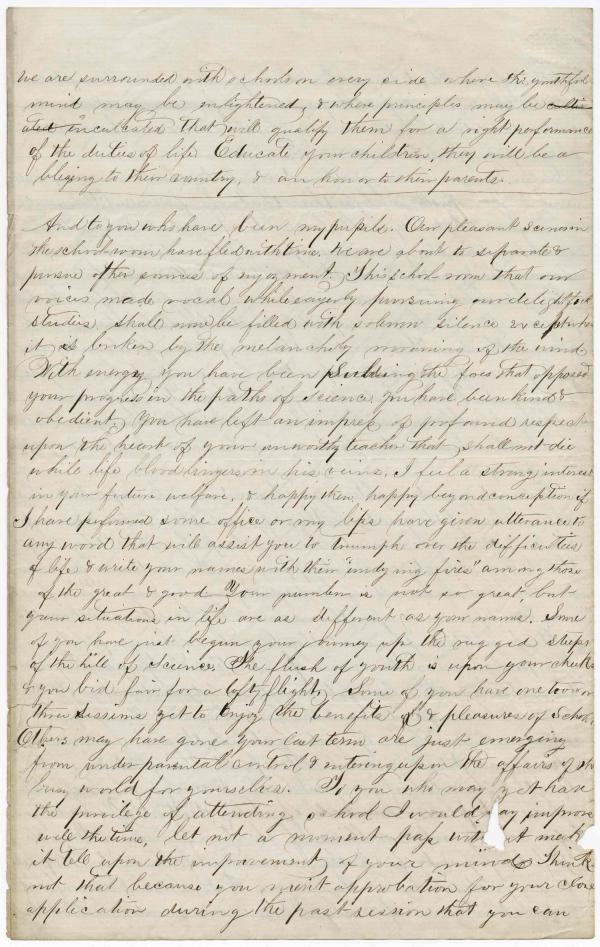 we are surrounded with schools on every side where the youthful
mind may be enlightened, & where principles may be
inculcated that will qualify them for a right performance
of the duties of life Educate your children, they will be a
blessing to their country, & an honor to their parents.
And to you who have been my pupils. Our pleasant scenes in
the school-room have fled with time. We are about to separate &
pursue other sources of enjoyment. This school room that our
voices made vocal while eagerly pursuing our delightful
studies shall now be filled with solemn silence except when
it is broken by the melancholy moaning of the wind
With energy you have been the foes that opposed
your progress in the paths of Science. You have been kind &
obedient. You have left an impress of profound respect
upon the heart of your unworthy teacher that shall not die
while life blood lingers in his veins. I feel a strong interest
in your future welfare, & happy then, happy beyond conception if
I have performed some office or my lips have given utterance to
any word that will assist you to triumph over the difficulties
of life & write your names with their "undying fires" among those
of the great & good Your number is not so great, but
your situations in life are as different as your names. Some
of you have just begun your journey up the rugged steeps
of the hill of Science. The flush of youth is upon your cheeks
& you bid fair for a lofty flight. Some of you have one two or
three sessions yet to enjoy the benefits & pleasures of School.
Others may have gone your last term are just emerging
from under parental control & entering upon the affairs of the
busy world for yourselves. To you who may yet have
the privilege of attending school I would say improve
well the time, let not a moment pass
it tell upon the improvement of your minds Think
not that because you merit approbation for your close
application during the past session that you can